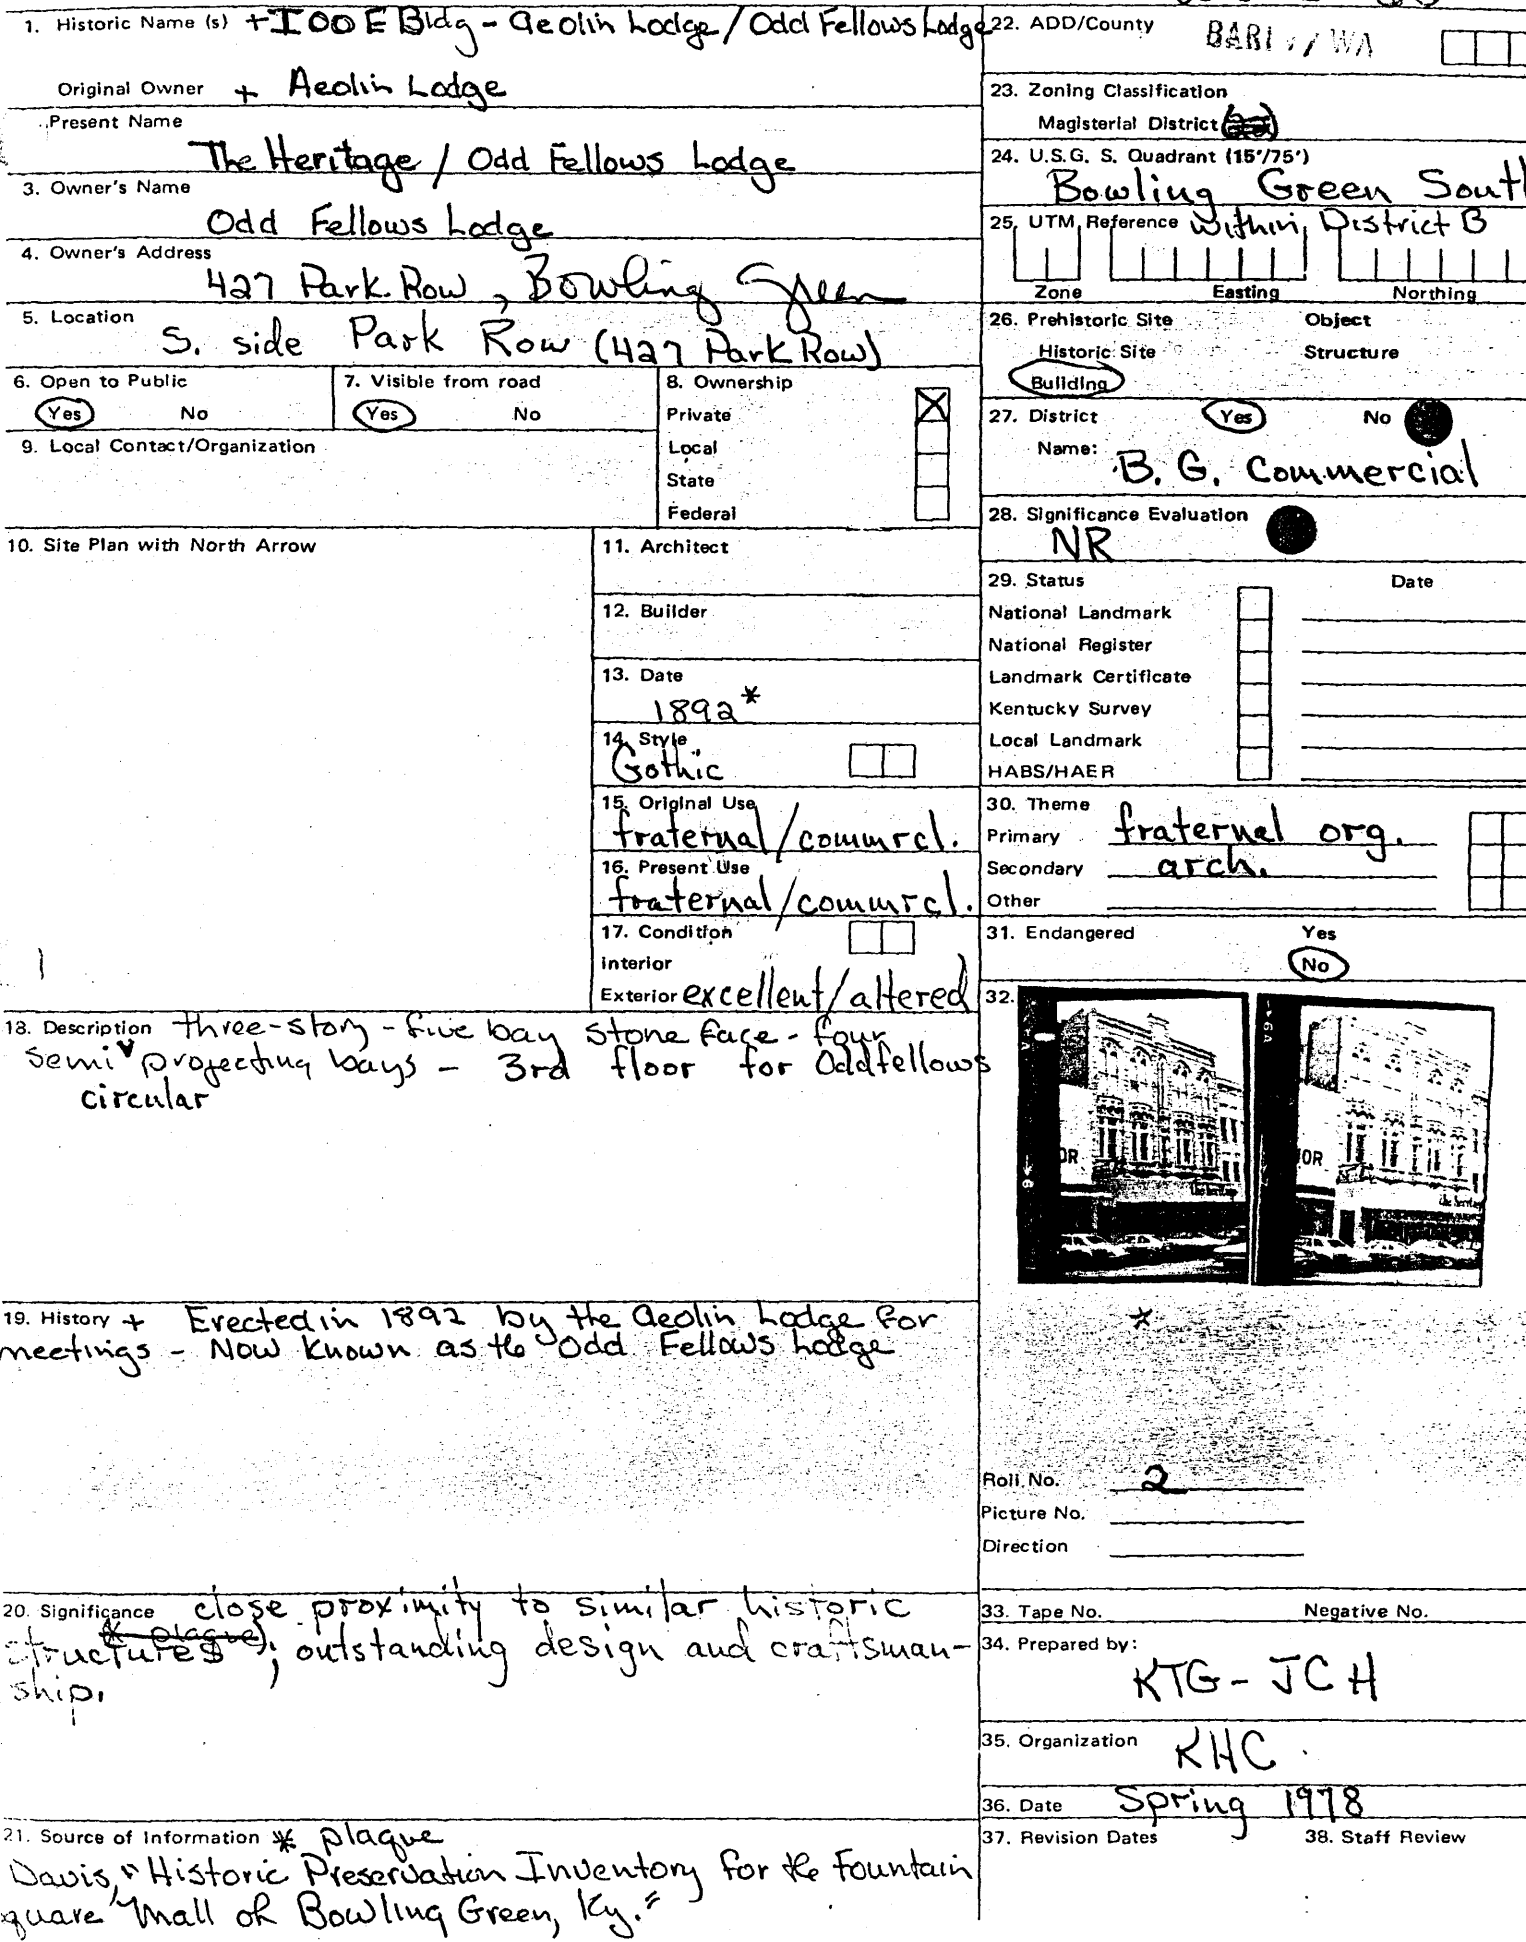 1. Historic Name (s) +IOOE Bldg - Aeolin Lodge / Odd Fellows Lodge
Original Owner + Aeolin Lodge
Present Name
The Heritage / Odd Fellows Lodge
3. Owner's Name
Odd Fellows Lodge
4. Owner's Address
427 Park Row, Bowling Green
5. Location
S. side Park Row (427 Park Row)
6. Open to Public
Yes No
7. Visible from road
Yes No
8. Ownership
Private
Local
State
Federal
9. Local Contact/Organization
10. Site Plan with North Arrow
11. Architect
12. Builder
13. Date
1892*
14. Style
Gothic
15. Original Use
fraternal/commrcl.
16. Present Use
fraternal/commrcl.
17. Condition
Interior
Exterior excellent/altered
18. Description three-story - five bay stone face - four
semi projecting bays - 3rd floor for Oddfellows
circular
19. History + Erected in 1892 by the Aeolin Lodge for
meetings - Now known as the Odd Fellows Lodge
20. Significance close proximity to similar historic
(* plaque)
structures; outstanding design and craftsman-
ship.
21. Source of Information * plaque
Davis, "Historic Preservation Inventory for the Fountain
quare Mall of Bowling Green, Ky."
22. ADD/County BARI WA
23. Zoning Classification
Magisterial District
24. U.S.G. S. Quadrant (15'/75')
Bowling Green Sout
25. UTM Reference within District B
Zone Easting Northing
26. Prehistoric Site Object
Historic Site Structure
Building
27. District Yes No
Name: B. G. Commercial
28. Significance Evaluation
NR
29. Status Date
National Landmark
National Register
Landmark Certificate
Kentucky Survey
Local Landmark
HABS/HAER
30. Theme
Primary fraternal org.
Secondary arch.
Other
31. Endangered Yes
No
32.
OR
the heritage
OR
*
Roll No. 2
Picture No.
Direction
33. Tape No. Negative No.
34. Prepared by:
KTG - JCH
35. Organization KHC
36. Date Spring 1978
37. Revision Dates 38. Staff Review